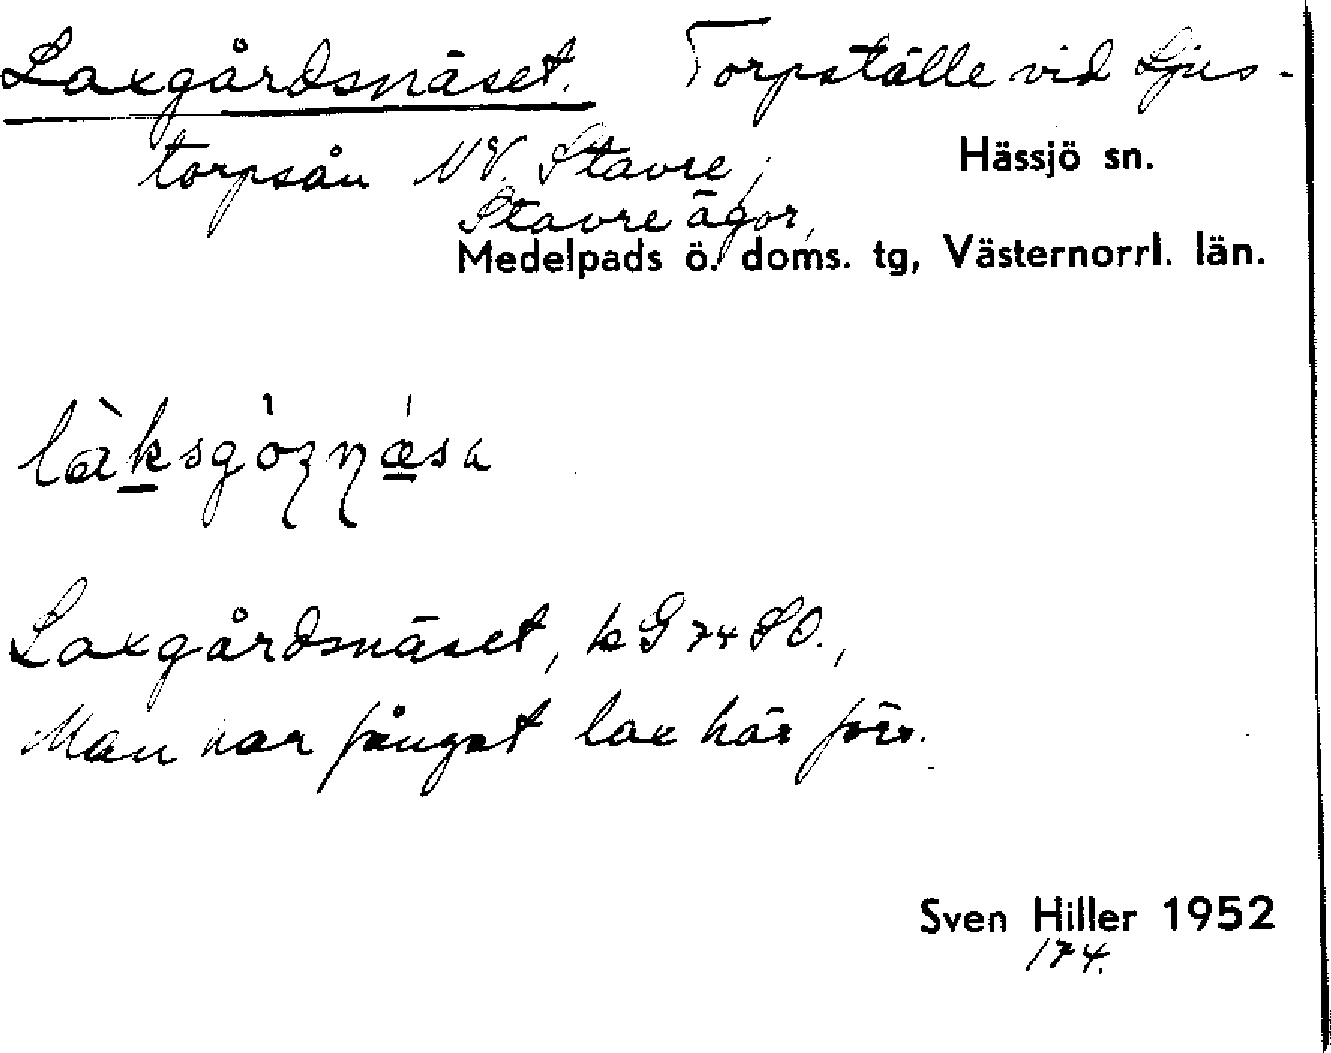 Laxgårdsnäset. Torpställe vid Ljus-
torpsån NV. Stavre, Hässjö sn.
Stavre ägor,
Medelpads ö. doms. tg, Västernorrl. län.
Laxgårdsnäset, k G 74 SO.,
Man har fångat lax här förr.
Sven Hiller 1952
174.